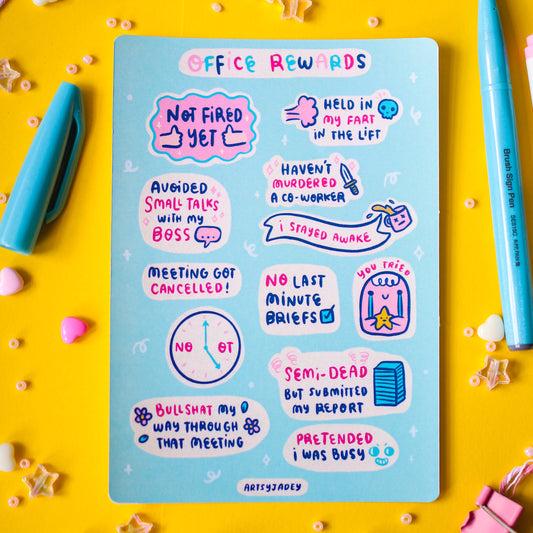 OFFICE REWARDS
NOT FIRED
YET
HELD IN
MY FART
IN THE LIFT
AVOIDED
SMALL TALKS
WITH MY
BOSS
HAVEN'T
MURDERED
A CO-WORKER
I STAYED AWAKE
MEETING GOT
CANCELLED!
NO LAST
MINUTE
BRIEFS
YOU TRIED
NO OT
SEMI-DEAD
BUT SUBMITTED
MY REPORT
BULLSHAT MY
WAY THROUGH
THAT MEETING
PRETENDED
I WAS BUSY
ARTSYJADEY
Brush Sign Pen